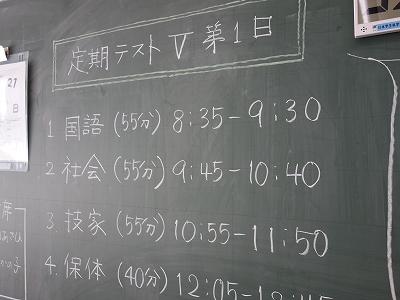 定期テストⅤ 第1日
1 国語 (55分) 8:35-9:30
2 社会 (55分) 9:45-10:40
3. 技家 (55分) 10:55-11:50
4. 保体 (40分) 12:05-12:45
27
日
席